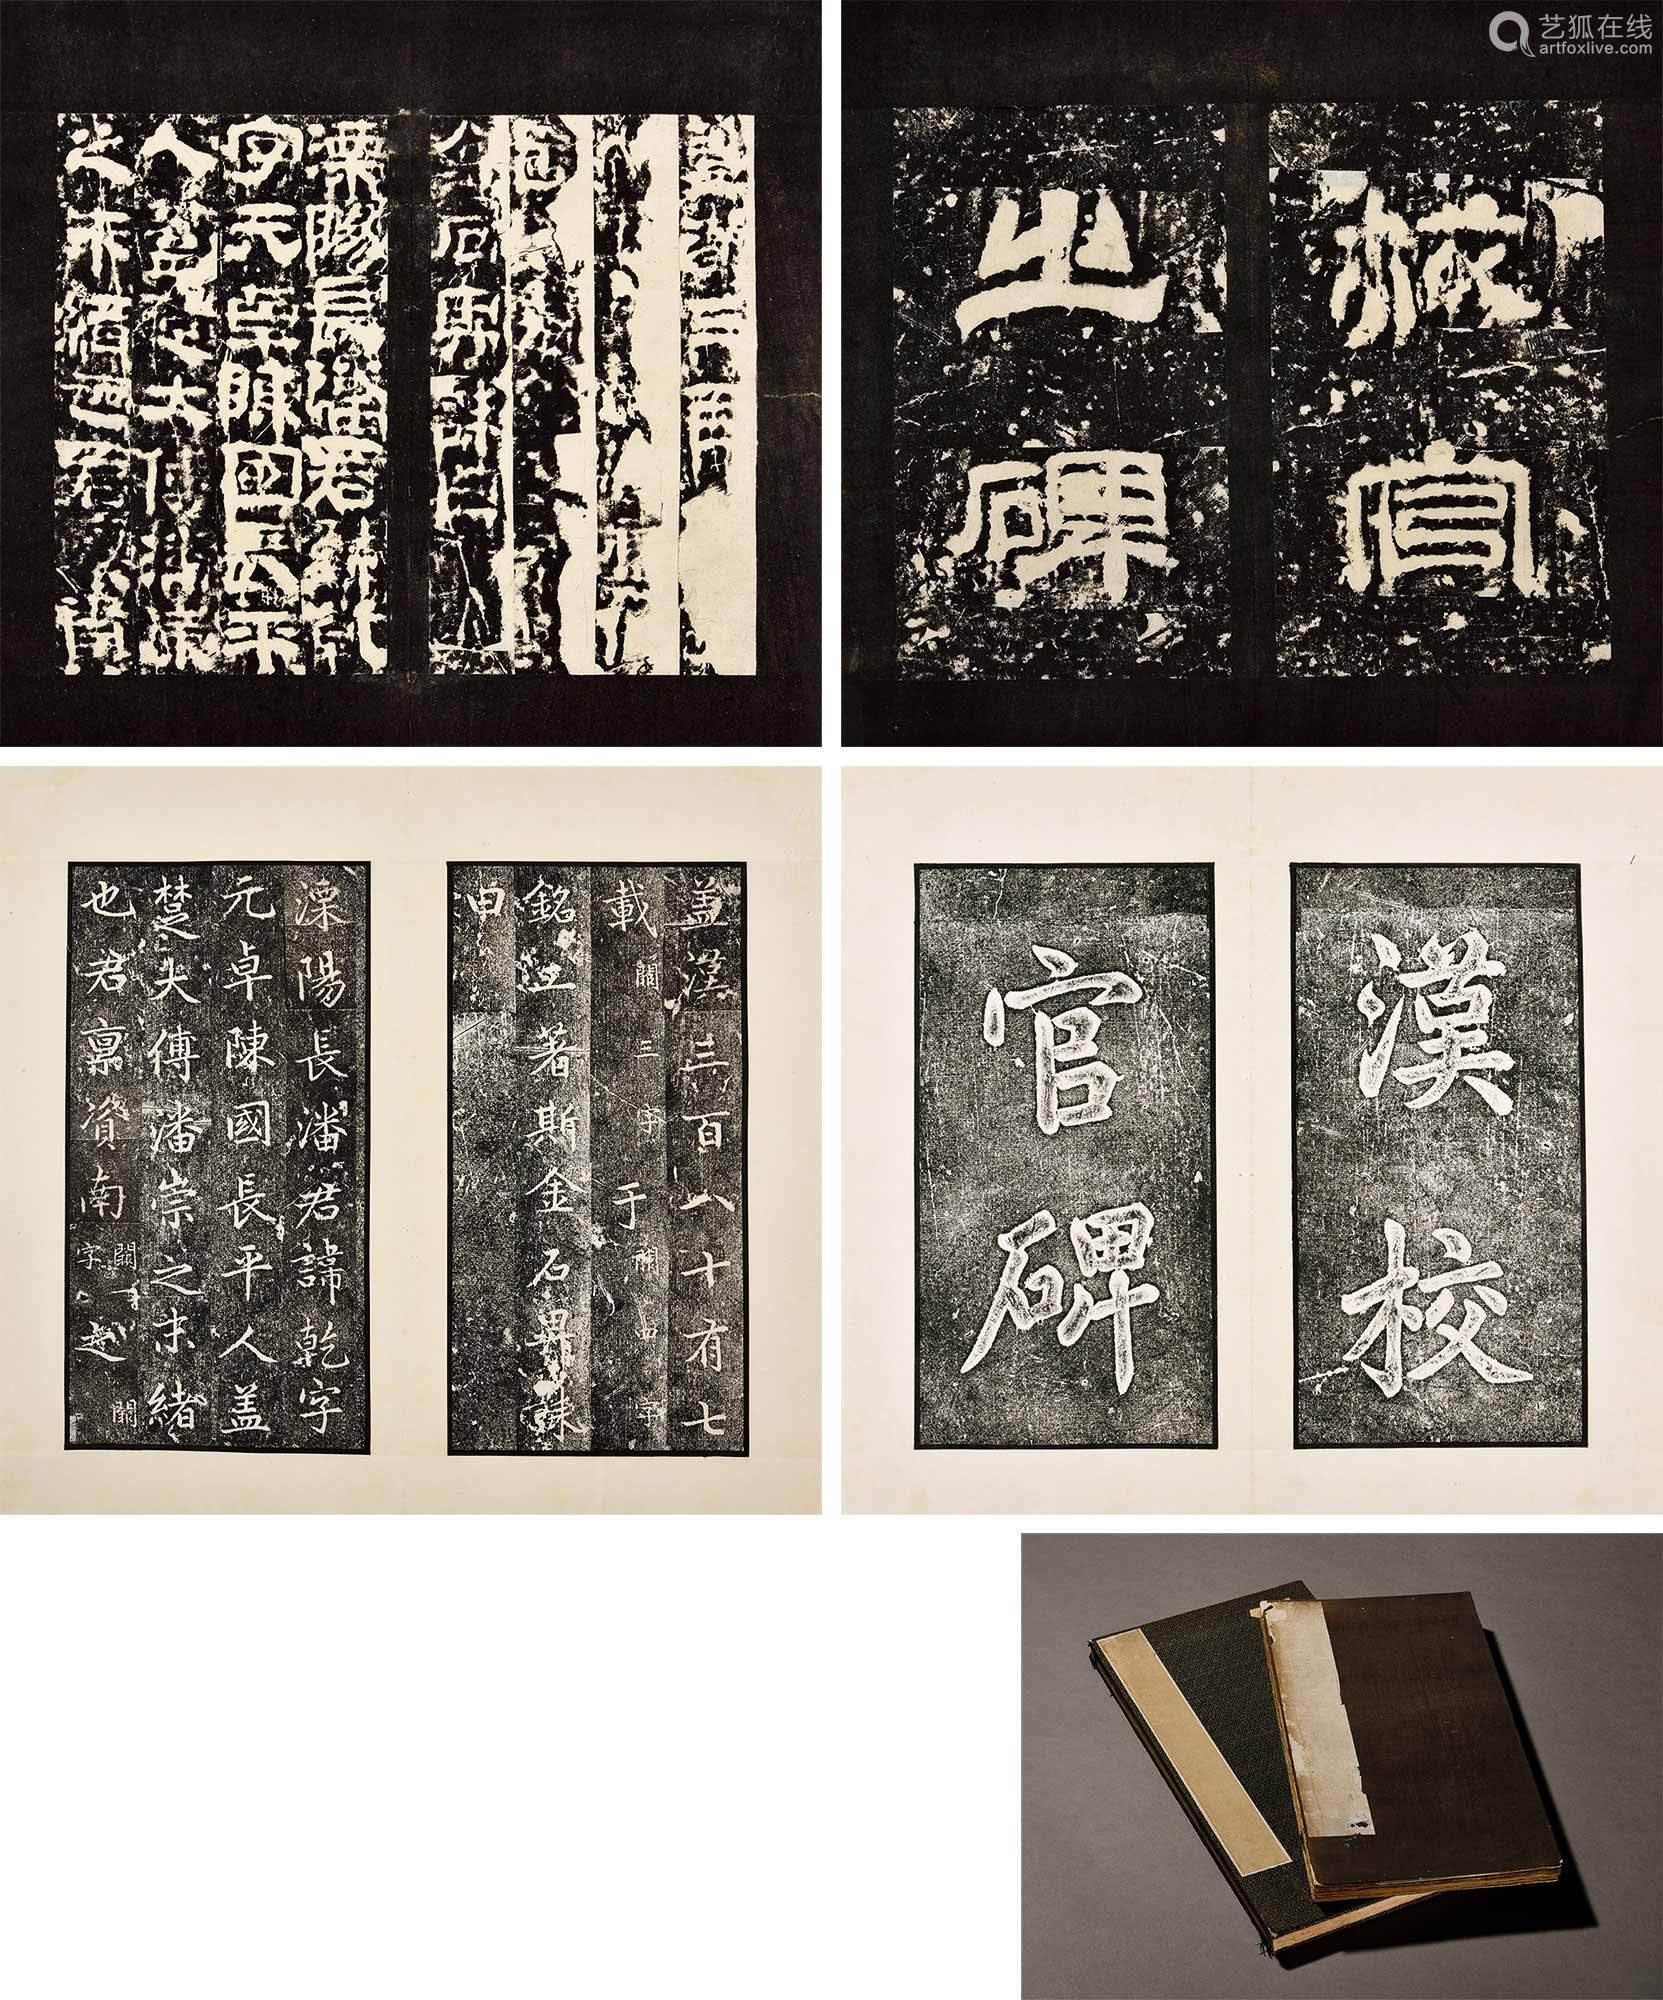 艺狐在线
artfoxlive.com
校官
之碑
溧陽長潘君諱乾
字元卓陳國長平
人蓋楚大傅潘崇
之末緒也君禀
漢校
官碑
盖漢三百八十有七
載闕三字于
銘工著斯金石畀誄
溧陽長潘君諱乾字
元卓陳國長平人盖
楚大傅潘崇之末緒
也君禀資南闕一字越闕